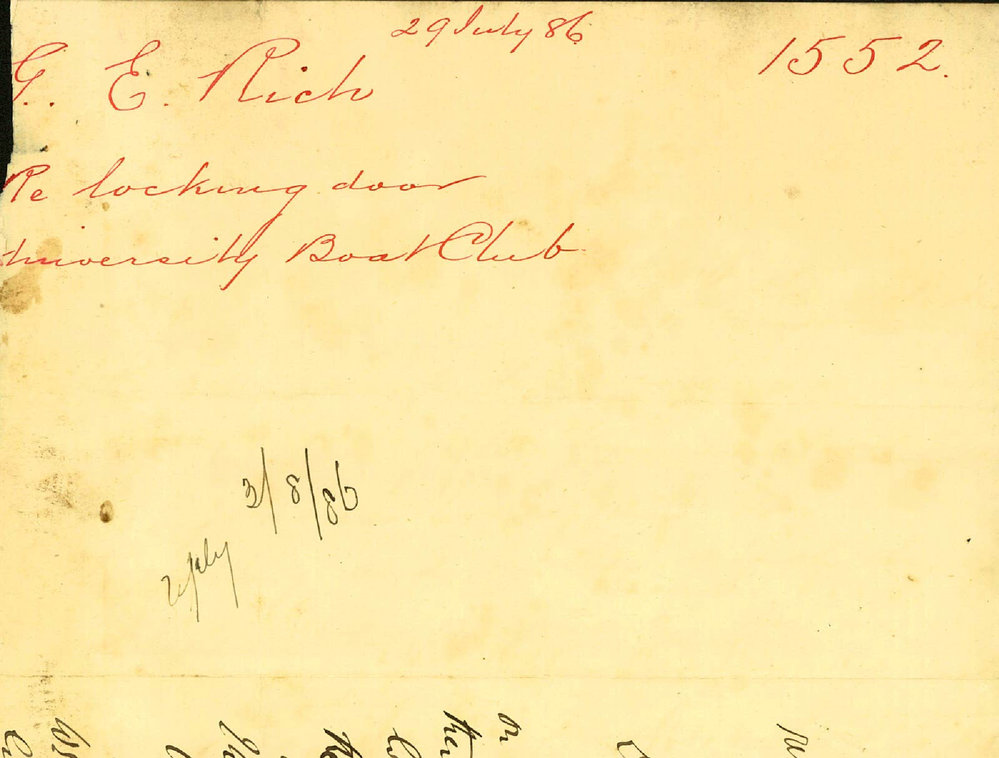 29 July 86
1552.
G. E. Rich
Re locking door
University Boat Club
3/8/86
reply
on